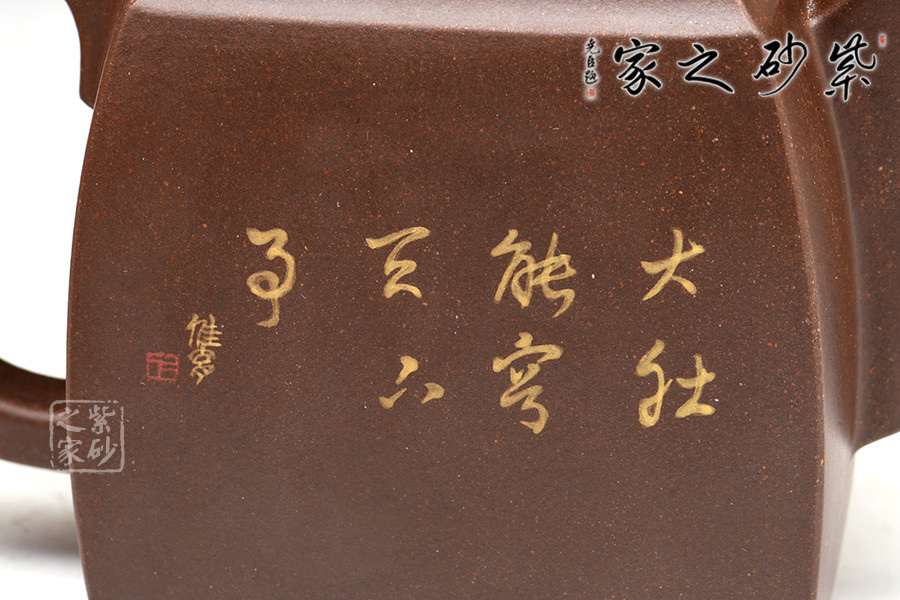 紫砂之家
大肚
能容
天下
事
紫砂
之家